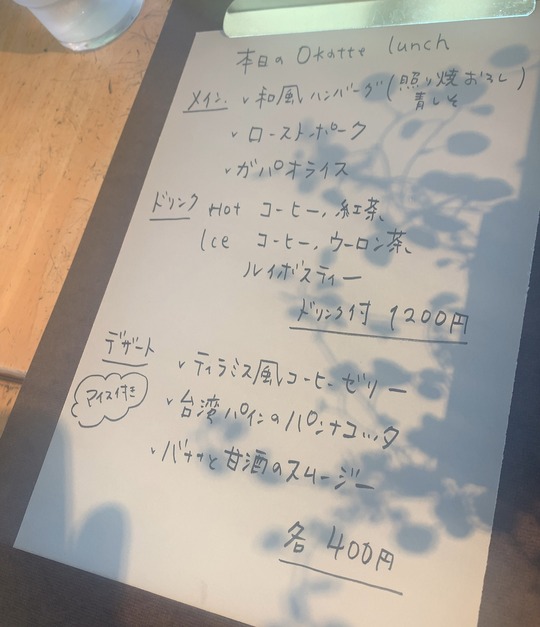 本日の Okatte lunch
メイン ✓和風ハンバーグ(照り焼おろし)
青しそ
✓ローストポーク
✓ガパオライス
ドリンク Hot コーヒー、紅茶、
Ice コーヒー、ウーロン茶、
ルイボスティー
ドリンク付 1200円
デザート
✓ティラミス風コーヒーゼリー
アイス付き
✓台湾パインのパンナコッタ
✓バナナと甘酒のスムージー
各 400円